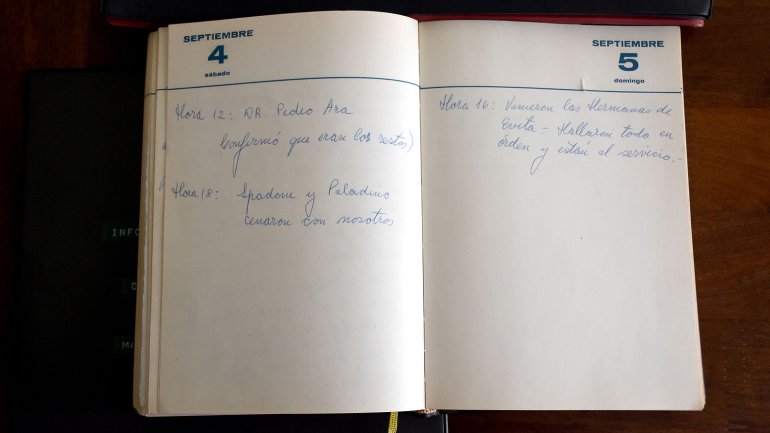 SEPTIEMBRE
4
sábado
Hora 12: DR. Pedro Ara
(confirmó que eran los restos)
Hora 18: Spadone y Paladino
cenaron con nosotros
SEPTIEMBRE
5
domingo
Hora 16: Vinieron las Hermanas de
Evita - Hallaron todo en
órden y están al servicio.-
INFO
MA